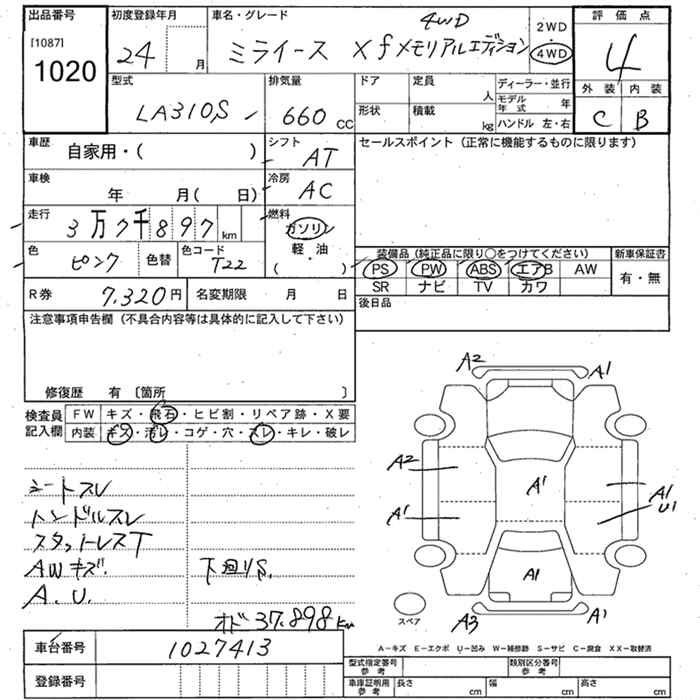 出品番号
[1087]
1020
初度登録年月
24 月
車名・グレード
4WD
ミライース Xfメモリアルエディション
2WD
4WD
評価点
4
外装 内装
C B
型式
LA310S
排気量
660 cc
ドア
定員
人
形状
積載
kg
ディーラー・並行
モデル年式 年
ハンドル 左・右
車歴
自家用・( )
シフト
AT
セールスポイント (正常に機能するものに限ります)
車検
年 月( 日)
冷房
AC
走行
3万7千897 km
燃料
ガソリン
軽・油
( )
色
ピンク
色替
色コード
T22
装備品 (純正品に限り○をつけてください)
PS PW ABS エアB AW
SR ナビ TV カワ
新車保証書
有・無
R券
7,320円
名変期限 月 日
後日品
注意事項申告欄 (不具合内容等は具体的に記入して下さい)
修復歴 有 〔箇所 〕
検査員
記入欄
FW キズ・飛石・ヒビ割・リペア跡・X要
内装 キズ・汚レ・コゲ・穴・スレ・キレ・破レ
シートスレ
ハンドルスレ
スタットレスT
AWキズ.
下回りS.
A.U.
オド37.898km
車台番号
1027413
登録番号
A2
A1
A2
A1
A1
A1
U1
A1
A1
スペア
A3
A1
A-キズ E-エクボ U-凹み W-補修跡 S-サビ C-腐食 XX-取替済
型式指定番号
参考
類別区分番号
参考
車庫証明用
参考
長さ cm
幅 cm
高さ cm